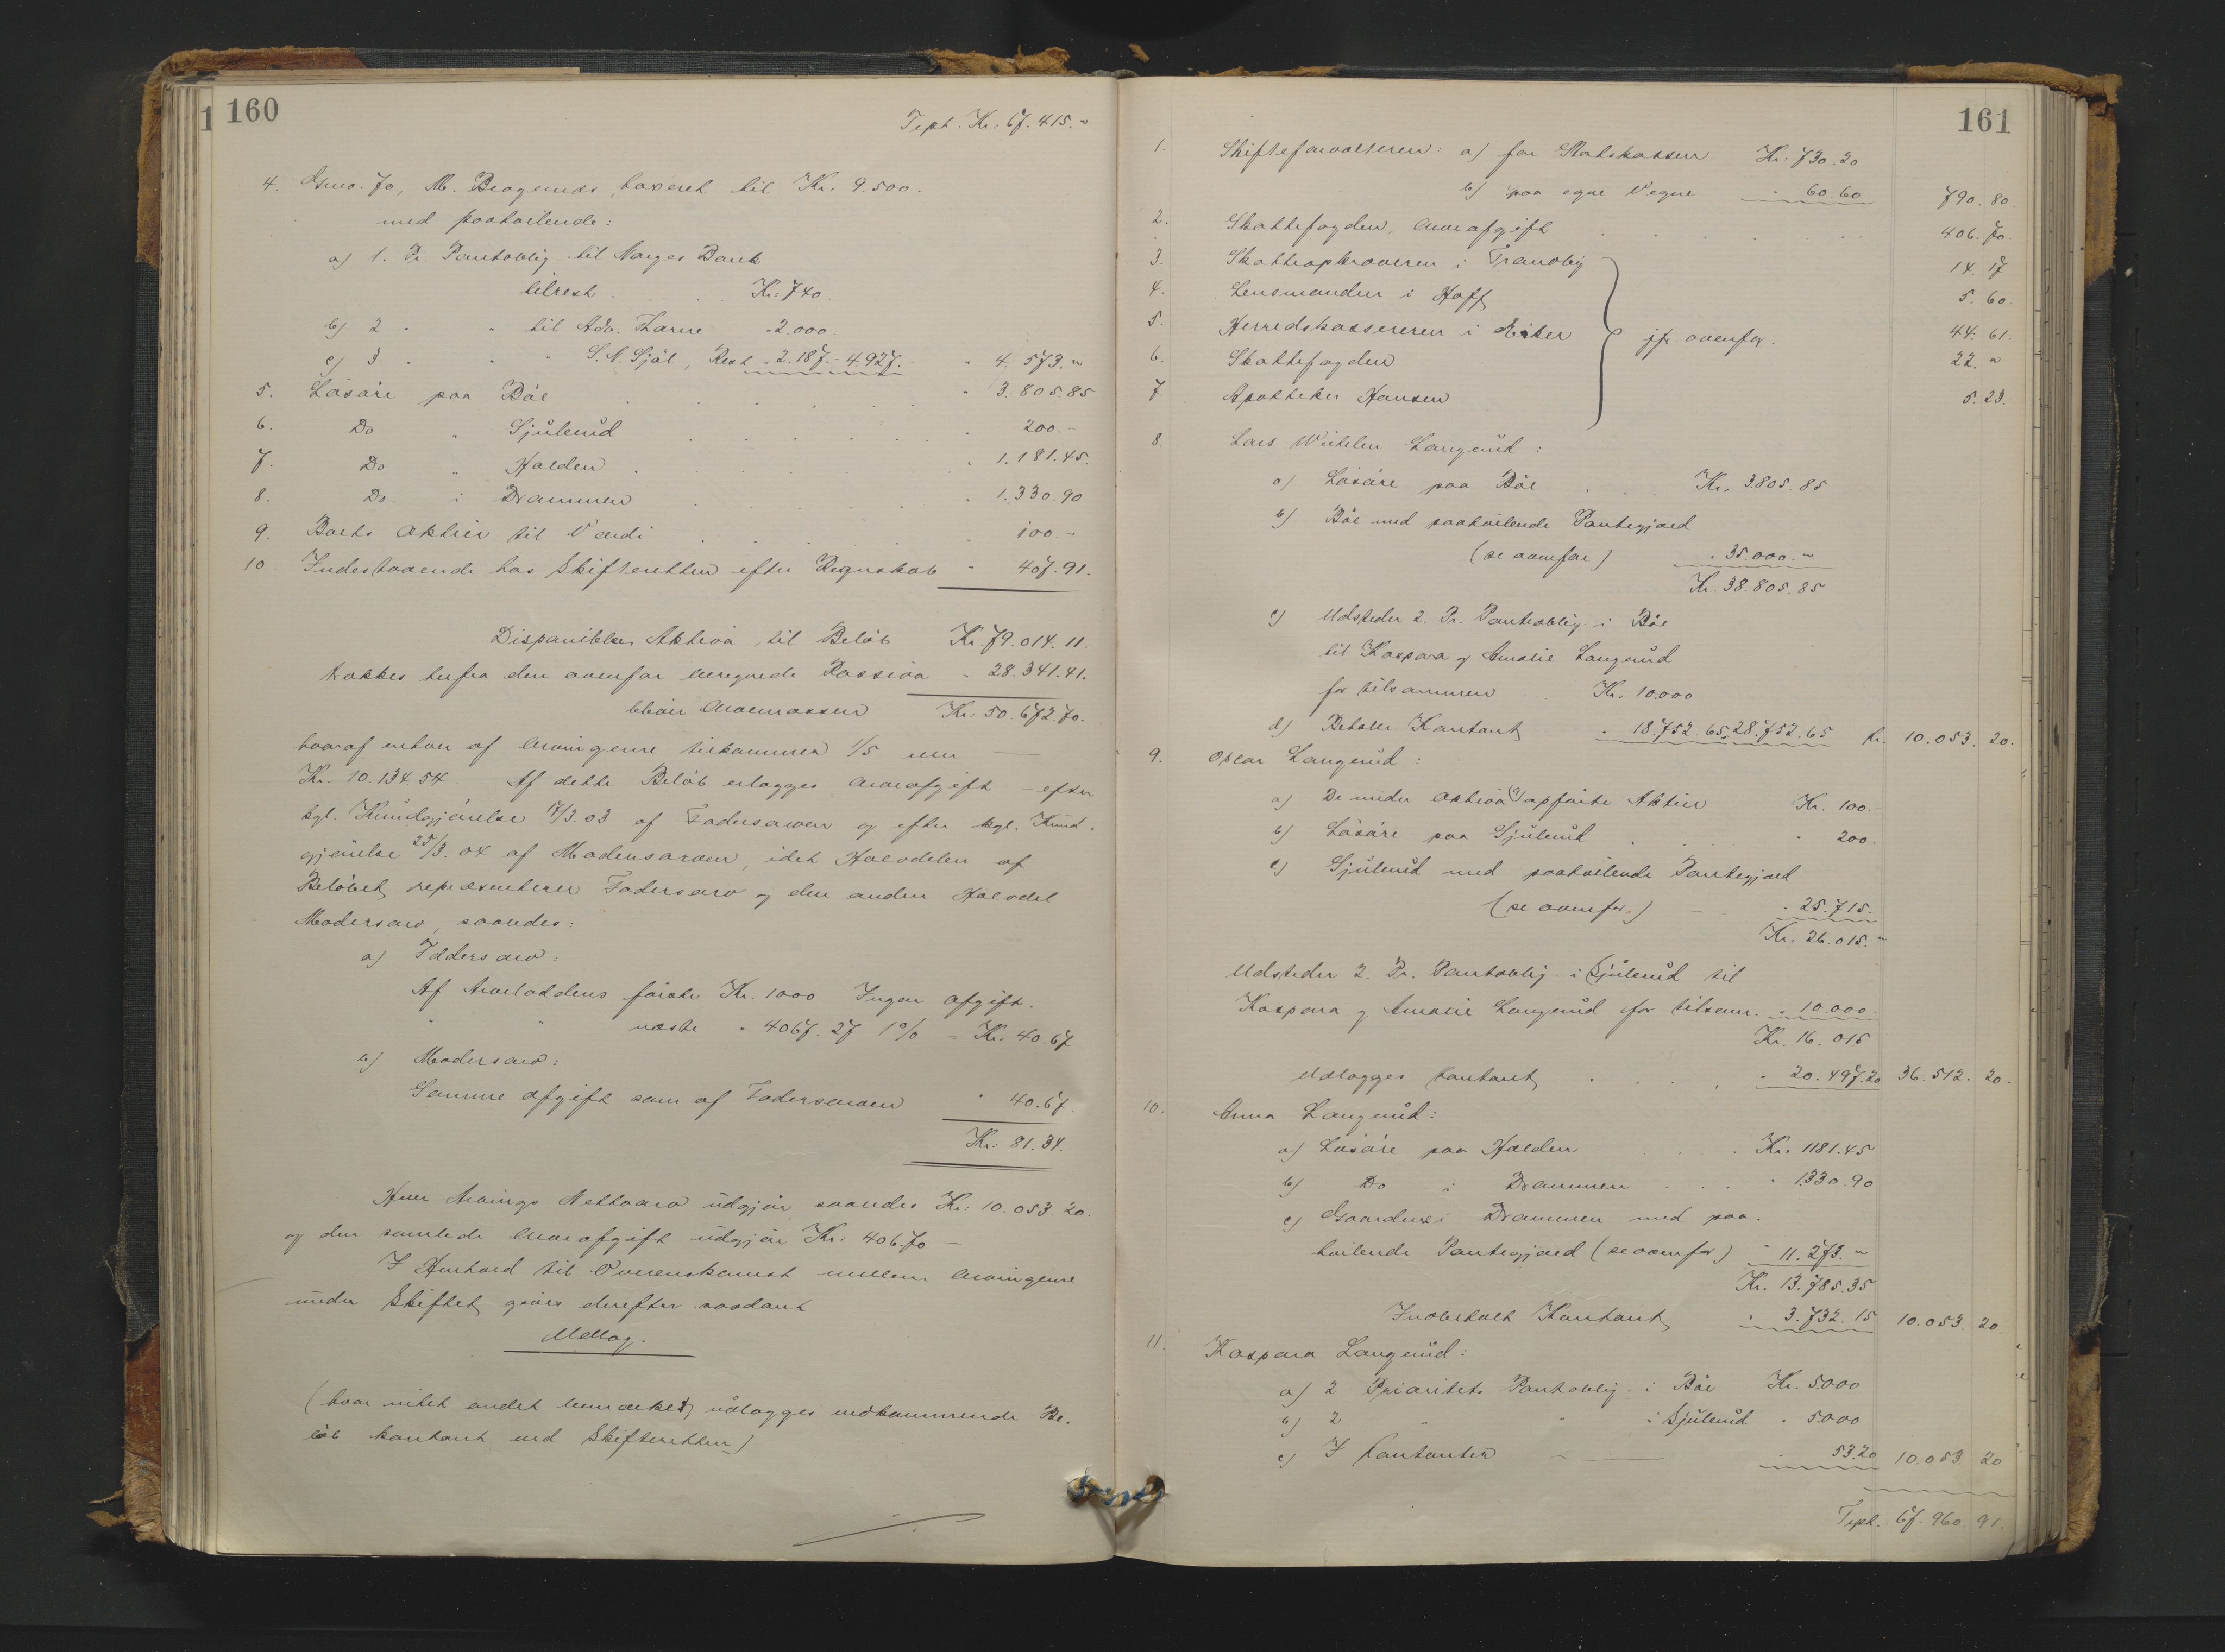 160
Tspt. Kr. 67.415.-
4. Gmo. 70, M. Bragernes, taxeret til Kr. 9.500.
med paahvilende:
a) 1. Pr. Pantoblig. til Norges Bank
tilrest . . . Kr. 740.
b) 2 " " til Adv. Harre " 2.000.
c) 3 " " " S. N. Sjøl, Rest " 2.187 - 4927. " 4.573."
5. Løsøre paa Bøe . . . . . . " 3.805.85
6. Do " Sjulerud . . . . . . " 200.-
7. Do " Halden . . . . . . " 1.181.45.
8. Do i Drammen . . . . . " 1.330.90
9. Boets Aktier til Værdi . . . . . " 100.-
10 Indestaaende hos Skifteretten efter Regnskab " 407.91.
Disponibles Aktiva til Beløb Kr. 79.014.11.
trækkes herfra den ovenfor beregnede Passiva " 28.341.41.
bliver Arvemassen Kr. 50.672.70.
hvoraf enhver af Arvingerne tilkommer 1/5 eller
Kr. 10.134.54. Af dette Beløb erlægges Arveafgift - efter
kgl. Kundgjørelse 17/3.03 af Fadersarven og efter kgl. Kund-
gjørelse 25/3.04 af Modersarven, idet Halvdelen af
Beløbet repræsenterer Fadersarv og den anden Halvdel
Modersarv, saaledes:
a) Fadersarv:
Af Arveloddens første Kr. 1000 Ingen afgift.
" " næste " 4067.27 1% = Kr. 40.67
b) Modersarv:
Samme afgift som af Fadersarven " 40.67.
Kr. 81.34.
Hver Arvings Nettoarv udgjør saaledes Kr. 10.053.20.
og den samlede Arveafgift udgjør Kr. 406.70 -
I Henhold til Overenskomst mellem Arvingerne
under Skiftet gøres derefter saadant
Udlæg.
(hvor intet andet bemærket, udlægges vedkommende Be-
løb kontant ved Skifteretten)
161
1. Skifteforvalteren: a) for Statskassen Kr. 730.20
b) paa egne Vegne " 60.60 790.80.
2. Skattefogden, Arveafgift . . . . . . . 406.70.
3. Skatteopkræveren i Tranby 14.17
4. Lensmanden i Hoff 5.60
5. Herredskassereren i Eiker } jfr. ovenfor. 44.61.
6. Skattefogden 22."
7. Apotheker Hansen 5.23.
8. Lars Wichelm Langerud:
a) Løsøre paa Bøe . . . Kr. 3805.85
b) Bøe med paahvilende Pantegjæld
(se ovenfor) " 35.000."
Kr. 38.805.85
c) Udsteder 2. Pr. Pantoblig. i Bøe
til Kaspara og Amalie Langerud
for tilsammen Kr. 10.000
d) Betaler Kontant " 18.752.65 28.752.65 Kr. 10.053.20.
9. Oscar Langerud:
a) De under aktiva 9) opførte Aktier Kr. 100.-
b) Løsøre paa Sjulerud . . . " 200.
c) Sjulerud med paahvilende Pantegjæld
(se ovenfor) " 25.715.
Kr. 26.015.-
Udsteder 2. Pr. Pantoblig. i Sjulerud til
Kaspara og Amalie Langerud for tilsam. " 10.000.
Kr. 16.015
Udlægges kontant . . . . . " 20.497.20 36.512.20.
10. Anna Langerud:
a) Løsøre paa Halden . . . Kr. 1181.45
b) Do i Drammen . . . " 1330.90
c) Gaardene i Drammen med paa-
hvilende Pantegjæld (se ovenfor) " 11.273."
Kr. 13.785.35
Indbetalt Kontant " 3.732.15 10.053.20
11. Kaspara Langerud:
a) 2 Prioritets Pantoblig. i Bøe Kr. 5000
b) 2 " " i Sjulerud " 5000
c) I Kontanter " 53.20 10.053.20
Tspt. 67.960 91.